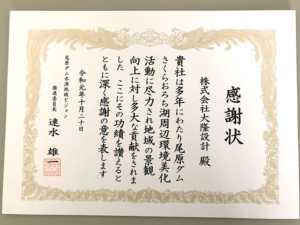 感謝状
株式会社大隆設計 殿
貴社は多年にわたり尾原ダム
さくらおろち湖周辺環境美化
活動に尽力され地域の景観
向上に対し多大な貢献をされま
した ここにその功績を讃えると
ともに深く感謝の意を表します
令和元年十月二十日
尾原ダム水源地域ビジョン
推進委員長
速水 雄一